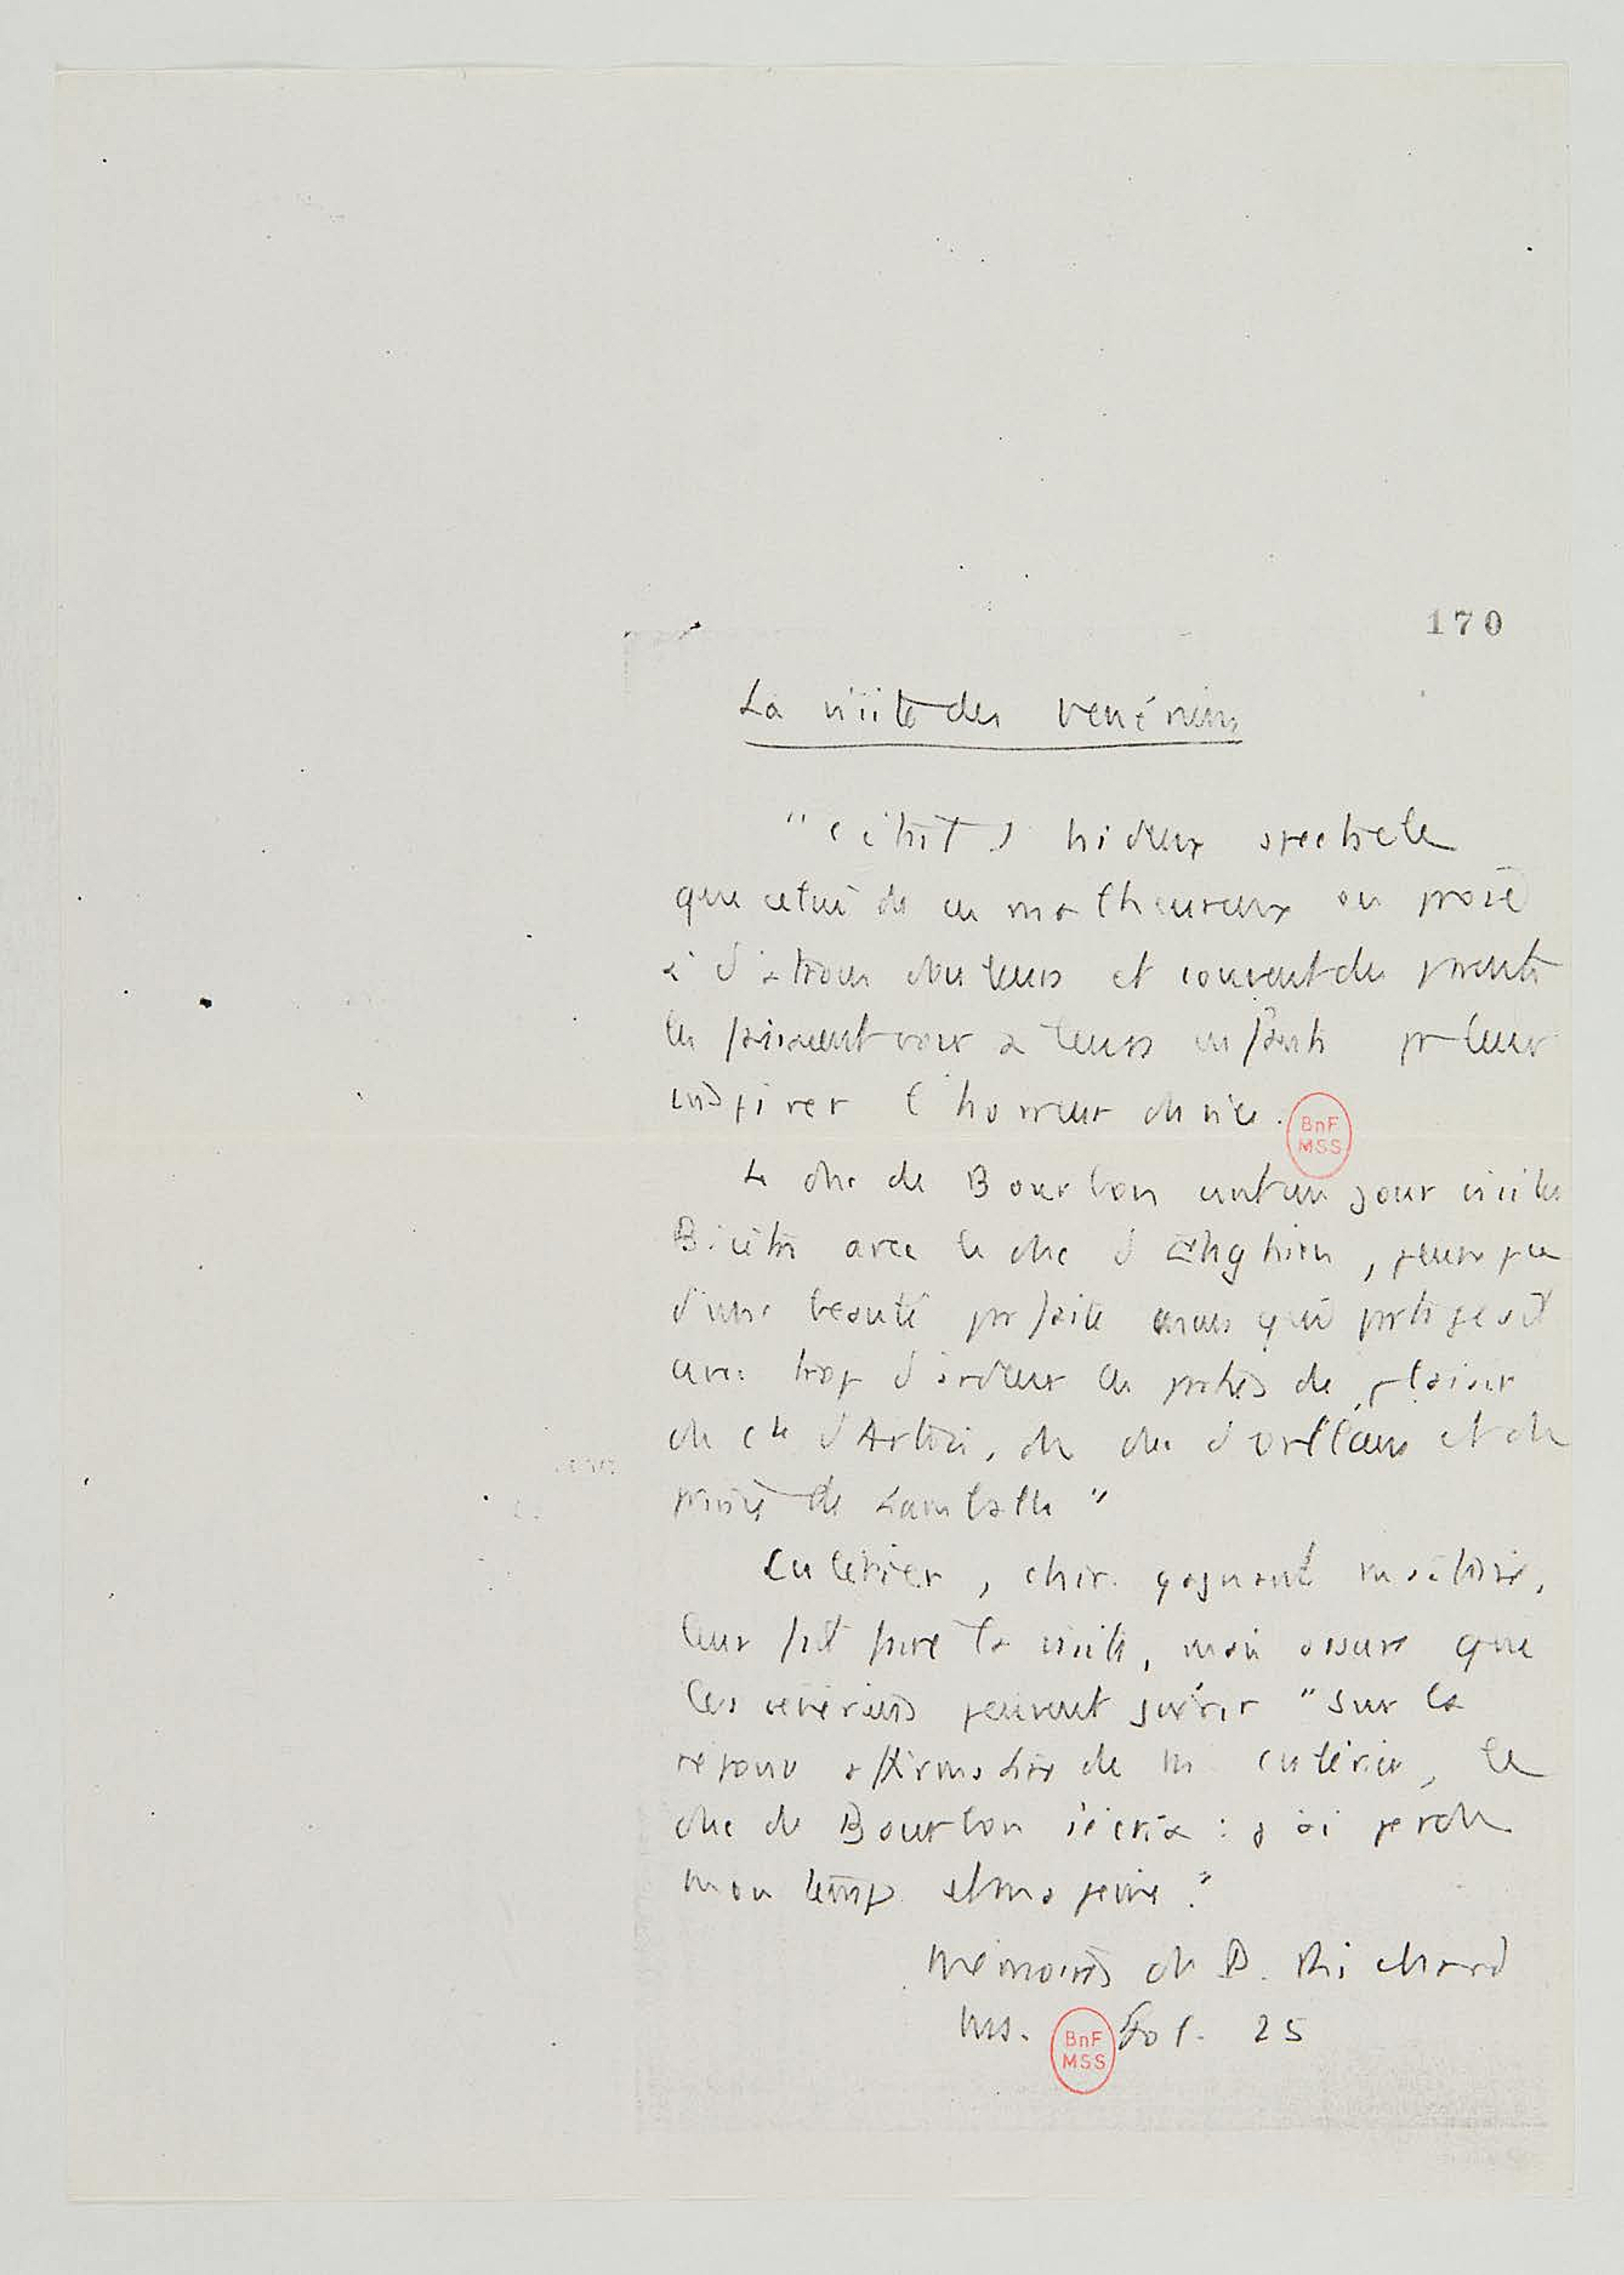 170
La visite des vénériens
"C'était 1 hideux spectacle
que celui de ces malheureux en proie
à d'atroces douleurs et souvent des parents
les faisaient voir à leurs enfants pr leur
inspirer l'horreur du vice.
BnF
MSS
Le duc de Bourbon vint un jour visiter
Bicêtre avec le duc d'Enghien,
d'une beauté parfaite mais qui partageait
avec trop d'ardeur les parties de plaisir
du Cte d'Artois, du duc d'Orléans et du
prince de Lamballe"
Cullerier, chir. gagnant maîtrise,
leur fit faire la visite, mais assure que
les vénériens peuvent guérir "Sur la
réponse affirmative de M. Cullerier, le
duc de Bourbon s'écria : j'ai perdu
mon temps et ma peine."
Mémoires du B. Richard
ms. fol. 25
BnF
MSS